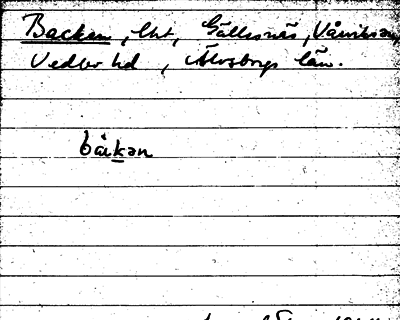 Backen, lht, Gällesnäs, Vånviken,
Vedbo hd, Älvsborgs län.
bakan